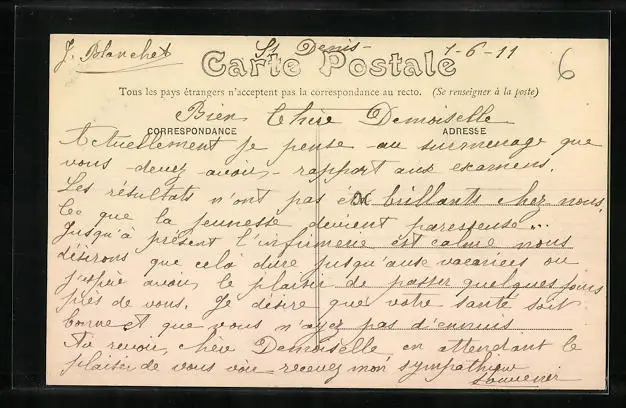 J. Blanchet
St Denis - 7-6-11
Carte Postale
6
Tous les pays étrangers n'acceptent pas la correspondance au recto. (Se renseigner à la poste)
Bien Chère Demoiselle
CORRESPONDANCE
ADRESSE
Actuellement je pense au surmenage que
vous devez avoir rapport aux examens.
Les résultats n'ont pas été brillants chez nous.
Ce que la jeunesse devient paresseuse...
Jusqu'à présent l'infirmerie est calme nous
désirons que cela dure jusqu'aux vacances ou
j'espère avoir le plaisir de passer quelques jours
près de vous. Je désire que votre santé soit
bonne et que vous n'ayez pas d'ennuis
Au revoir, chère Demoiselle en attendant le
plaisir de vous voir recevez mon sympathique
souvenir